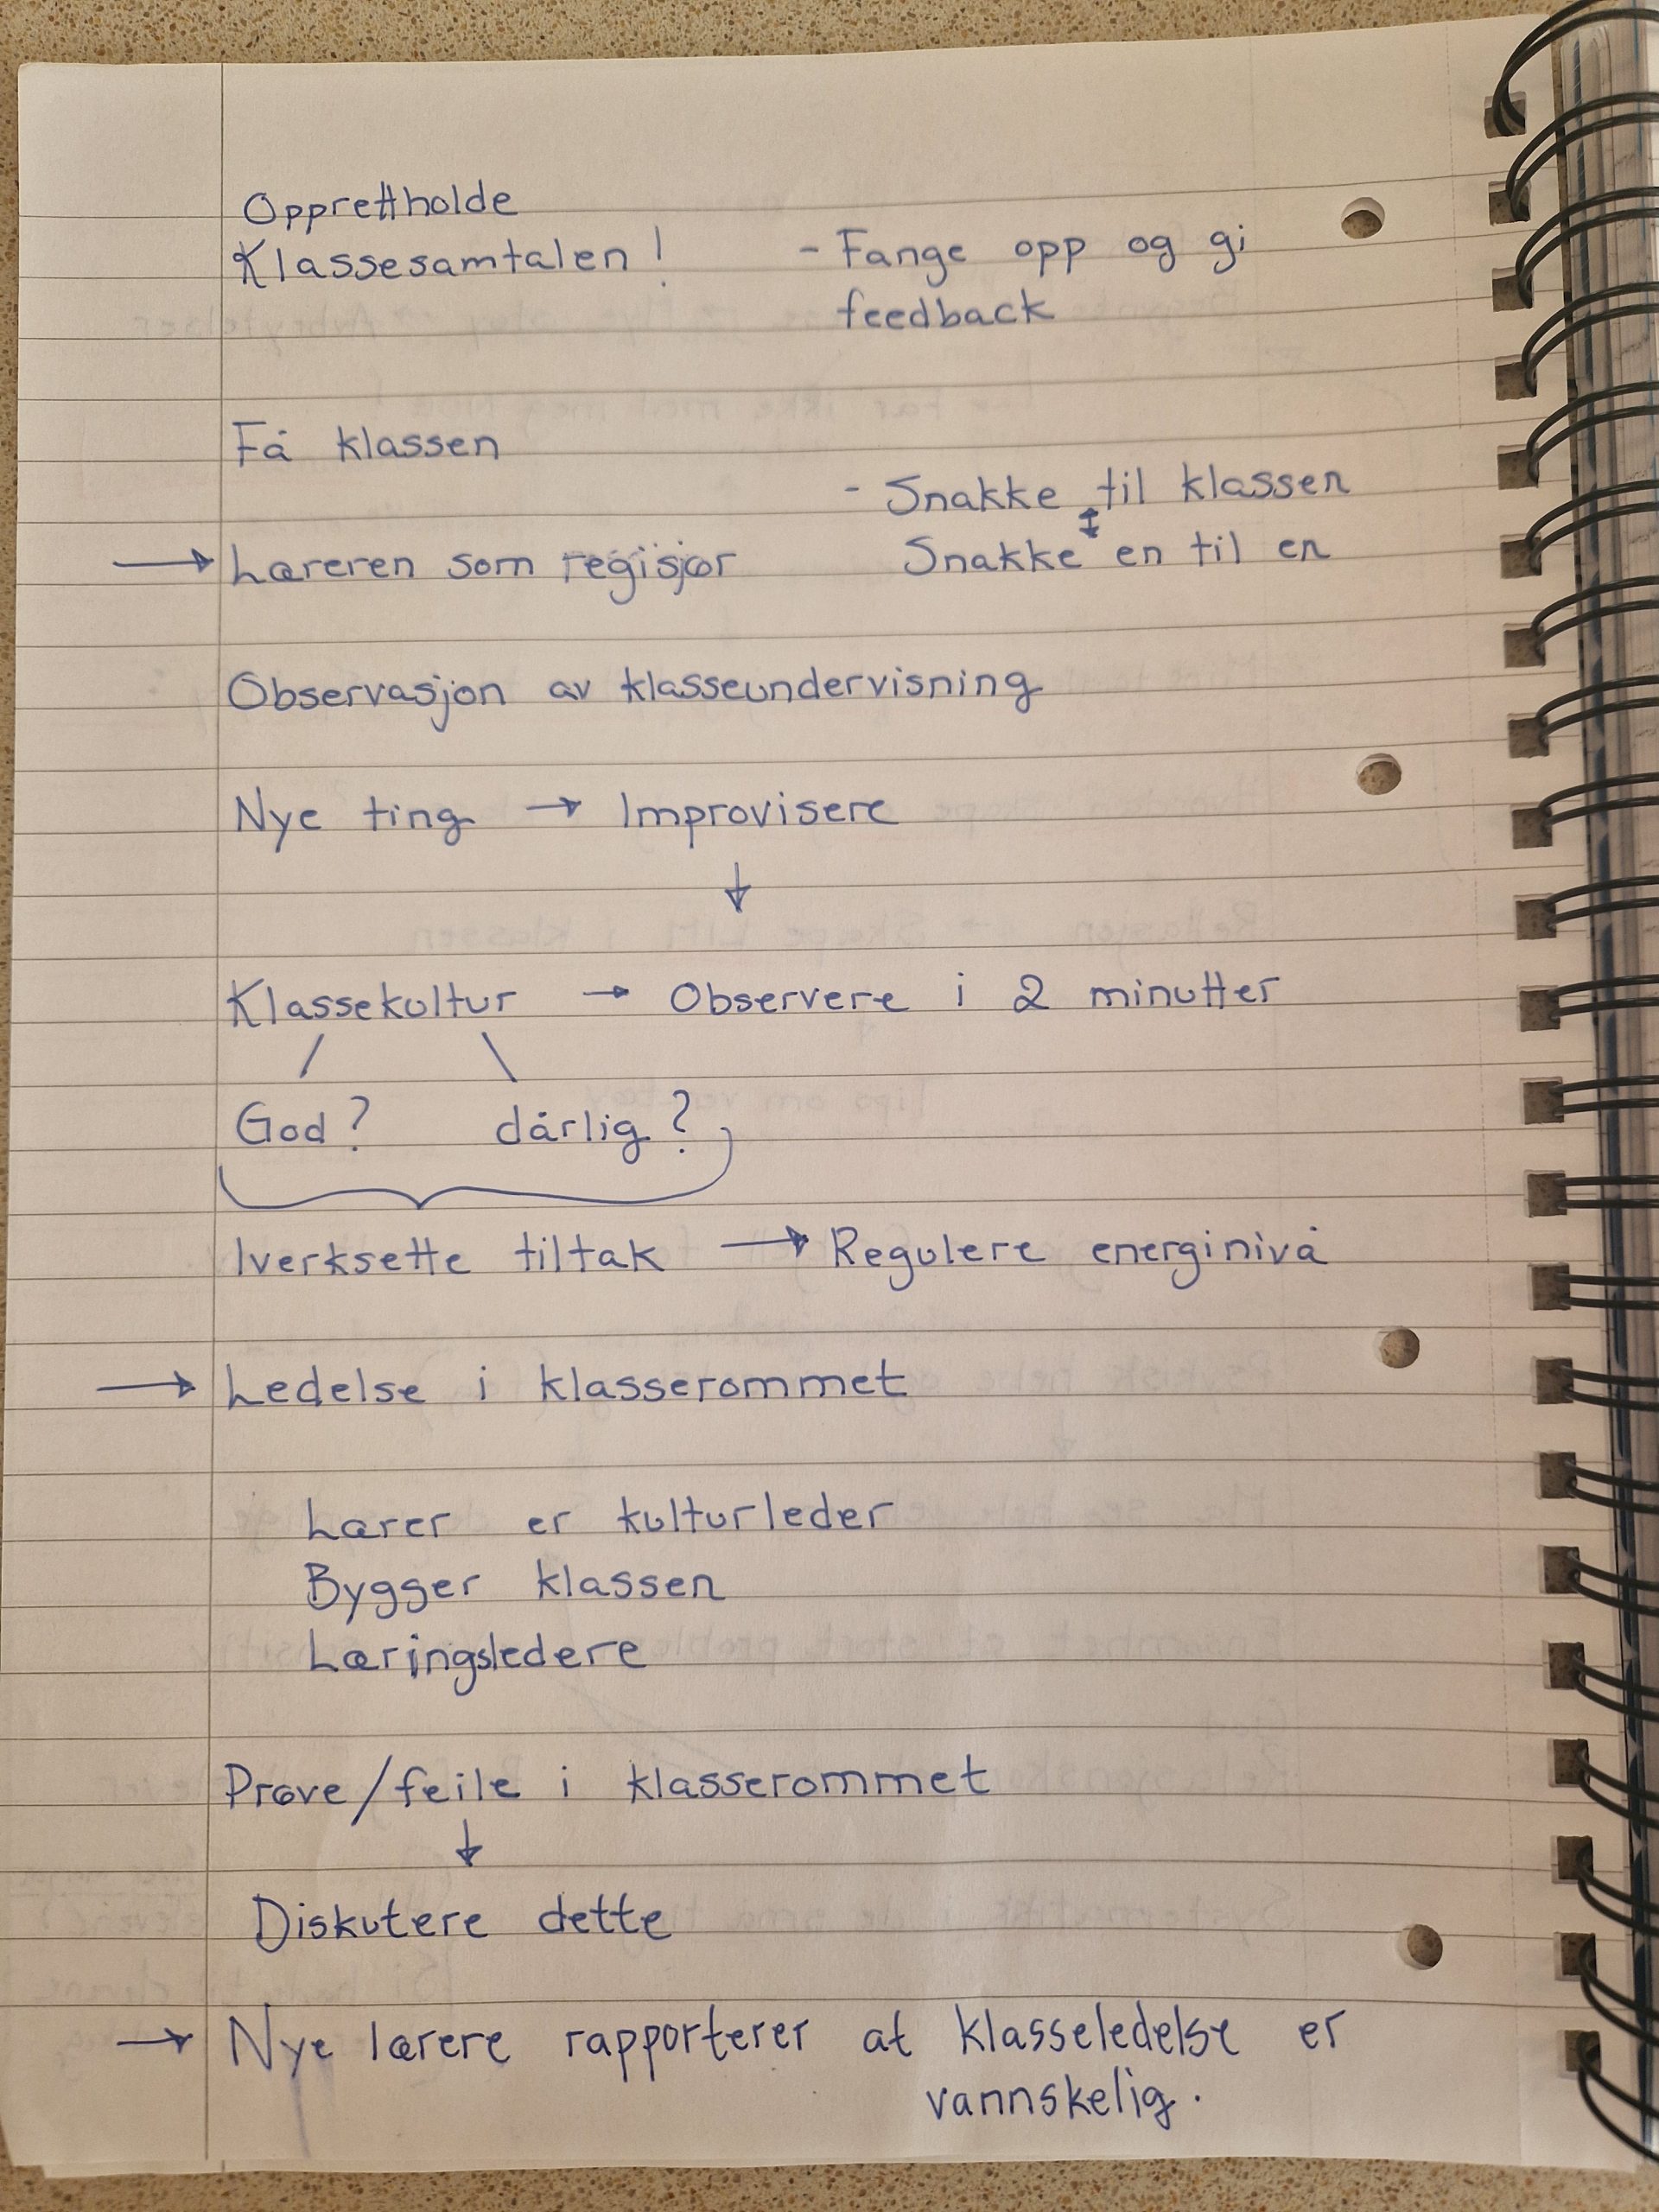 Opprettholde
Klassesamtalen! - Fange opp og gi
feedback
Få klassen
- Snakke til klassen
↕
→ Læreren som regisjør Snakke en til en
Observasjon av klasseundervisning
Nye ting → Improvisere
↓
Klassekultur → Observere i 2 minutter
God? dårlig?
Iverksette tiltak → Regulere energinivå
→ Ledelse i klasserommet
Lærer er kulturleder
Bygger klassen
Læringsledere
Prøve/feile i klasserommet
↓
Diskutere dette
→ Nye lærere rapporterer at klasseledelse er
vannskelig.